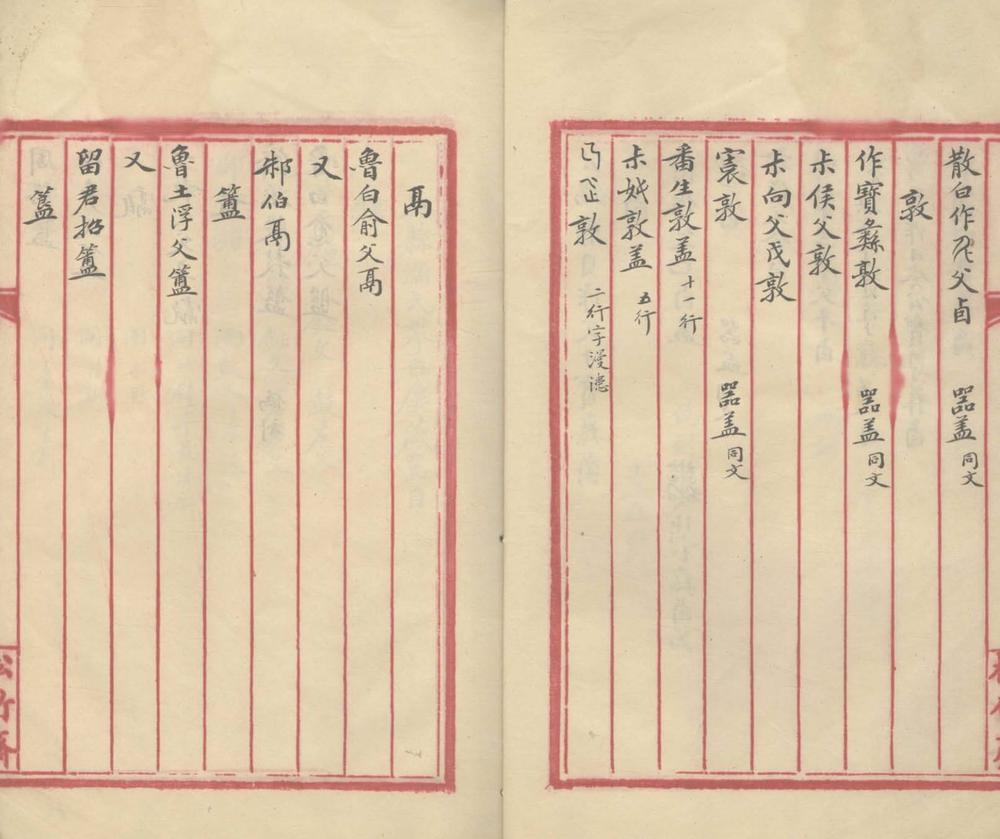 散白作父卣 器盖同文
敦
作寶彝敦 器盖同文
尗侯父敦
尗向父敦
寰敦 器盖同文
番生敦盖 十一行
尗敦盖 五行
敦 二行字漫漶
鬲
魯白俞父鬲
又
邾伯鬲
簠
魯士浮父簠
又
留君招簠
簋
松竹斋